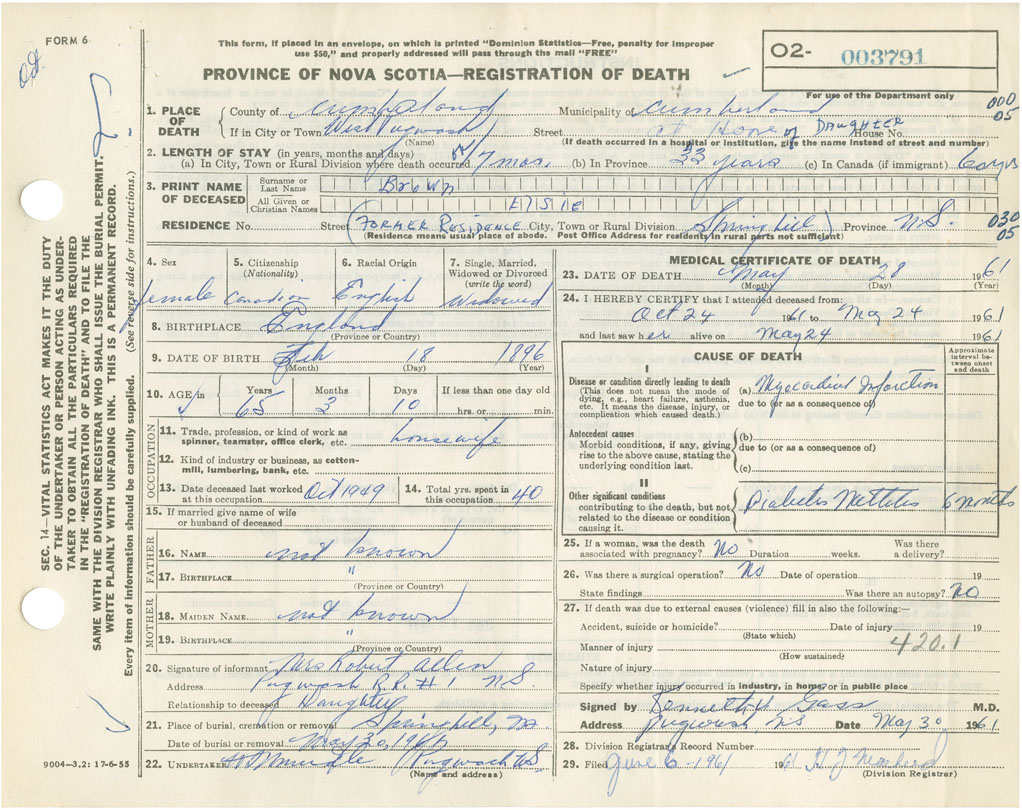 FORM 6
This form, if placed in an envelope, on which is printed "Dominion Statistics—Free, penalty for improper
use $50," and properly addressed will pass through the mail "FREE"
PROVINCE OF NOVA SCOTIA—REGISTRATION OF DEATH
02- 003791
For use of the Department only
000
05
1. PLACE OF DEATH
County of Cumberland Municipality of Cumberland
If in City or Town West Pugwash Street at Home of DAUGHTER House No.
(Name) (If death occurred in a hospital or institution, give the name instead of street and number)
2. LENGTH OF STAY (in years, months and days)
(a) In City, Town or Rural Division where death occurred 7 mos. (b) In Province 33 years (c) In Canada (if immigrant)
3. PRINT NAME OF DECEASED
Surname or Last Name Brown
All Given or Christian Names Elsie
RESIDENCE No. Street (FORMER RESIDENCE City, Town or Rural Division Springhill) Province N.S.
030
05
(Residence means usual place of abode. Post Office Address for residents in rural parts not sufficient)
4. Sex
female
5. Citizenship
(Nationality)
Canadian
6. Racial Origin
English
7. Single, Married,
Widowed or Divorced
(write the word)
Widowed
8. BIRTHPLACE England
(Province or Country)
9. DATE OF BIRTH Feb 18 1896
(Month) (Day) (Year)
10. AGE in Years Months Days If less than one day old
65 3 10 hrs. or min.
OCCUPATION
11. Trade, profession, or kind of work as
spinner, teamster, office clerk, etc. housewife
12. Kind of industry or business, as cotton-
mill, lumbering, bank, etc.
13. Date deceased last worked
at this occupation Oct 1949
14. Total yrs. spent in
this occupation 40
15. If married give name of wife
or husband of deceased
FATHER
16. NAME not known
17. BIRTHPLACE "
(Province or Country)
MOTHER
18. MAIDEN NAME not known
19. BIRTHPLACE "
(Province or Country)
20. Signature of informant Mrs Robert Allen
Address Pugwash R.R. #1 N.S.
Relationship to deceased Daughter
21. Place of burial, cremation or removal Springhill, NS
Date of burial or removal May 30, 1961
22. UNDERTAKER Pugwash NS
(Name and address)
MEDICAL CERTIFICATE OF DEATH
23. DATE OF DEATH May 28 1961
(Month) (Day) (Year)
24. I HEREBY CERTIFY that I attended deceased from:
Oct 24 1961 to May 24 1961
and last saw her alive on May 24 1961
CAUSE OF DEATH
Approximate
interval be-
tween onset
and death
I
Disease or condition directly leading to death
(This does not mean the mode of
dying, e.g., heart failure, asthenia,
etc. It means the disease, injury, or
complication which caused death.)
(a) Myocardial Infarction
due to (or as a consequence of)
Antecedent causes
Morbid conditions, if any, giving
rise to the above cause, stating the
underlying condition last.
(b)
due to (or as a consequence of)
(c)
II
Other significant conditions
contributing to the death, but not
related to the disease or condition
causing it.
Diabetes Mellitus 6 months
25. If a woman, was the death
associated with pregnancy? No Duration weeks. Was there
a delivery?
26. Was there a surgical operation? No Date of operation 19
State findings Was there an autopsy? No
27. If death was due to external causes (violence) fill in also the following:—
Accident, suicide or homicide? Date of injury 19
(State which)
420.1
Manner of injury
(How sustained)
Nature of injury
Specify whether injury occurred in industry, in home, or in public place
Signed by Kenneth V Gass M.D.
Address Pugwash, NS Date May 30 1961
28. Division Registrar's Record Number
29. Filed June 6 - 1961 1961
(Division Registrar)
SEC. 14—VITAL STATISTICS ACT MAKES IT THE DUTY
OF THE UNDERTAKER OR PERSON ACTING AS UNDER-
TAKER TO OBTAIN ALL THE PARTICULARS REQUIRED
IN THE "REGISTRATION OF DEATH" AND TO FILE THE
SAME WITH THE DIVISION REGISTRAR WHO SHALL ISSUE THE BURIAL PERMIT.
WRITE PLAINLY WITH UNFADING INK. THIS IS A PERMANENT RECORD.
Every item of information should be carefully supplied. (See reverse side for instructions.)
9004—3.2: 17-6-55